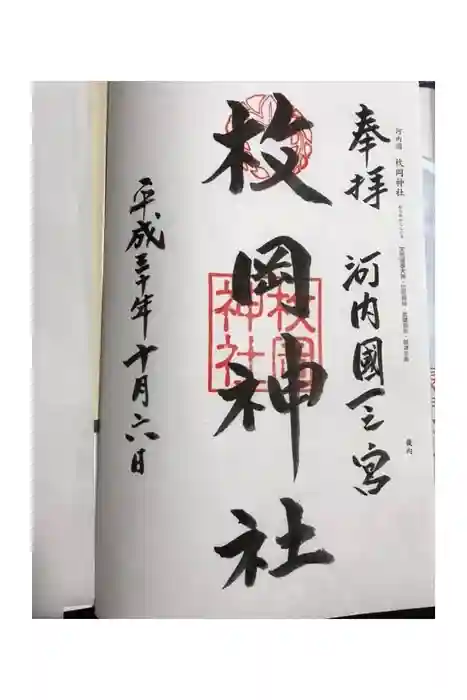 河内国 枚岡神社
奉拝 河内國一之宮
畿内
枚岡神社
枚岡
神社
平成三十年十月六日